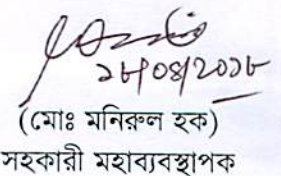 ১৮/০৪/২০১৮
(মোঃ মনিরুল হক)
সহকারী মহাব্যবস্থাপক